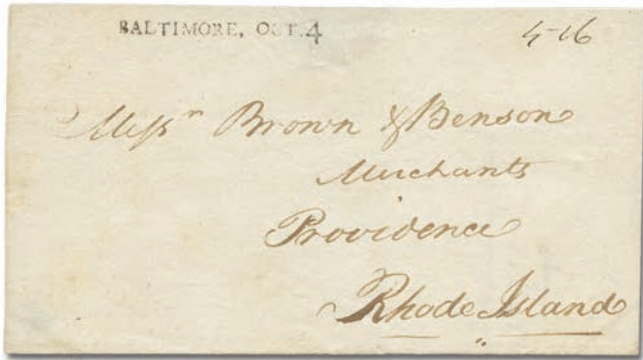 BALTIMORE, OCT. 4
4–16
Messrs Brown & Benson
Merchants
Providence
Rhode Island